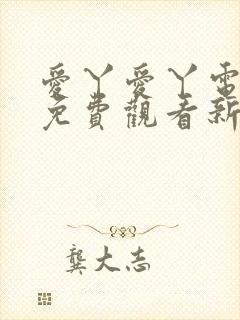 愛丫愛丫電
免費觀看新
龔大志